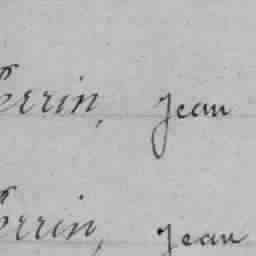 Perrin, Jean
Perrin, Jean